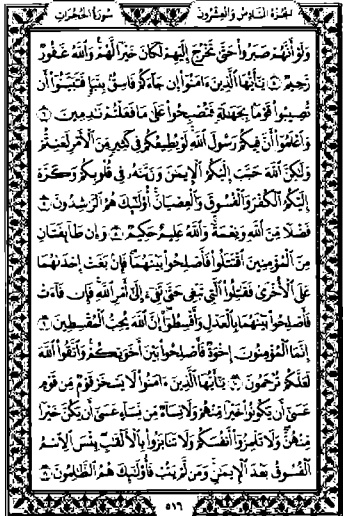 الجزء السادس والعشرون سورة الحجرات
وَلَوْ أَنَّهُمْ صَبَرُوا۟ حَتَّىٰ تَخْرُجَ إِلَيْهِمْ لَكَانَ خَيْرًا لَّهُمْ وَٱللَّهُ غَفُورٌ
رَّحِيمٌ ۝ يَٰٓأَيُّهَا ٱلَّذِينَ ءَامَنُوٓا۟ إِن جَآءَكُمْ فَاسِقٌۢ بِنَبَإٍ فَتَبَيَّنُوٓا۟ أَن
تُصِيبُوا۟ قَوْمًۢا بِجَهَٰلَةٍ فَتُصْبِحُوا۟ عَلَىٰ مَا فَعَلْتُمْ نَٰدِمِينَ ۝
وَٱعْلَمُوٓا۟ أَنَّ فِيكُمْ رَسُولَ ٱللَّهِ لَوْ يُطِيعُكُمْ فِى كَثِيرٍ مِّنَ ٱلْأَمْرِ لَعَنِتُّمْ
وَلَٰكِنَّ ٱللَّهَ حَبَّبَ إِلَيْكُمُ ٱلْإِيمَٰنَ وَزَيَّنَهُۥ فِى قُلُوبِكُمْ وَكَرَّهَ
إِلَيْكُمُ ٱلْكُفْرَ وَٱلْفُسُوقَ وَٱلْعِصْيَانَ أُو۟لَٰٓئِكَ هُمُ ٱلرَّٰشِدُونَ ۝
فَضْلًا مِّنَ ٱللَّهِ وَنِعْمَةً وَٱللَّهُ عَلِيمٌ حَكِيمٌ ۝ وَإِن طَآئِفَتَانِ
مِنَ ٱلْمُؤْمِنِينَ ٱقْتَتَلُوا۟ فَأَصْلِحُوا۟ بَيْنَهُمَا فَإِنۢ بَغَتْ إِحْدَىٰهُمَا
عَلَى ٱلْأُخْرَىٰ فَقَٰتِلُوا۟ ٱلَّتِى تَبْغِى حَتَّىٰ تَفِىٓءَ إِلَىٰٓ أَمْرِ ٱللَّهِ فَإِن فَآءَتْ
فَأَصْلِحُوا۟ بَيْنَهُمَا بِٱلْعَدْلِ وَأَقْسِطُوٓا۟ إِنَّ ٱللَّهَ يُحِبُّ ٱلْمُقْسِطِينَ ۝
إِنَّمَا ٱلْمُؤْمِنُونَ إِخْوَةٌ فَأَصْلِحُوا۟ بَيْنَ أَخَوَيْكُمْ وَٱتَّقُوا۟ ٱللَّهَ
لَعَلَّكُمْ تُرْحَمُونَ ۝ يَٰٓأَيُّهَا ٱلَّذِينَ ءَامَنُوا۟ لَا يَسْخَرْ قَوْمٌ مِّن قَوْمٍ
عَسَىٰٓ أَن يَكُونُوا۟ خَيْرًا مِّنْهُمْ وَلَا نِسَآءٌ مِّن نِّسَآءٍ عَسَىٰٓ أَن يَكُنَّ خَيْرًا
مِّنْهُنَّ وَلَا تَلْمِزُوٓا۟ أَنفُسَكُمْ وَلَا تَنَابَزُوا۟ بِٱلْأَلْقَٰبِ بِئْسَ ٱلِٱسْمُ
ٱلْفُسُوقُ بَعْدَ ٱلْإِيمَٰنِ وَمَن لَّمْ يَتُبْ فَأُو۟لَٰٓئِكَ هُمُ ٱلظَّٰلِمُونَ ۝
٥١٦